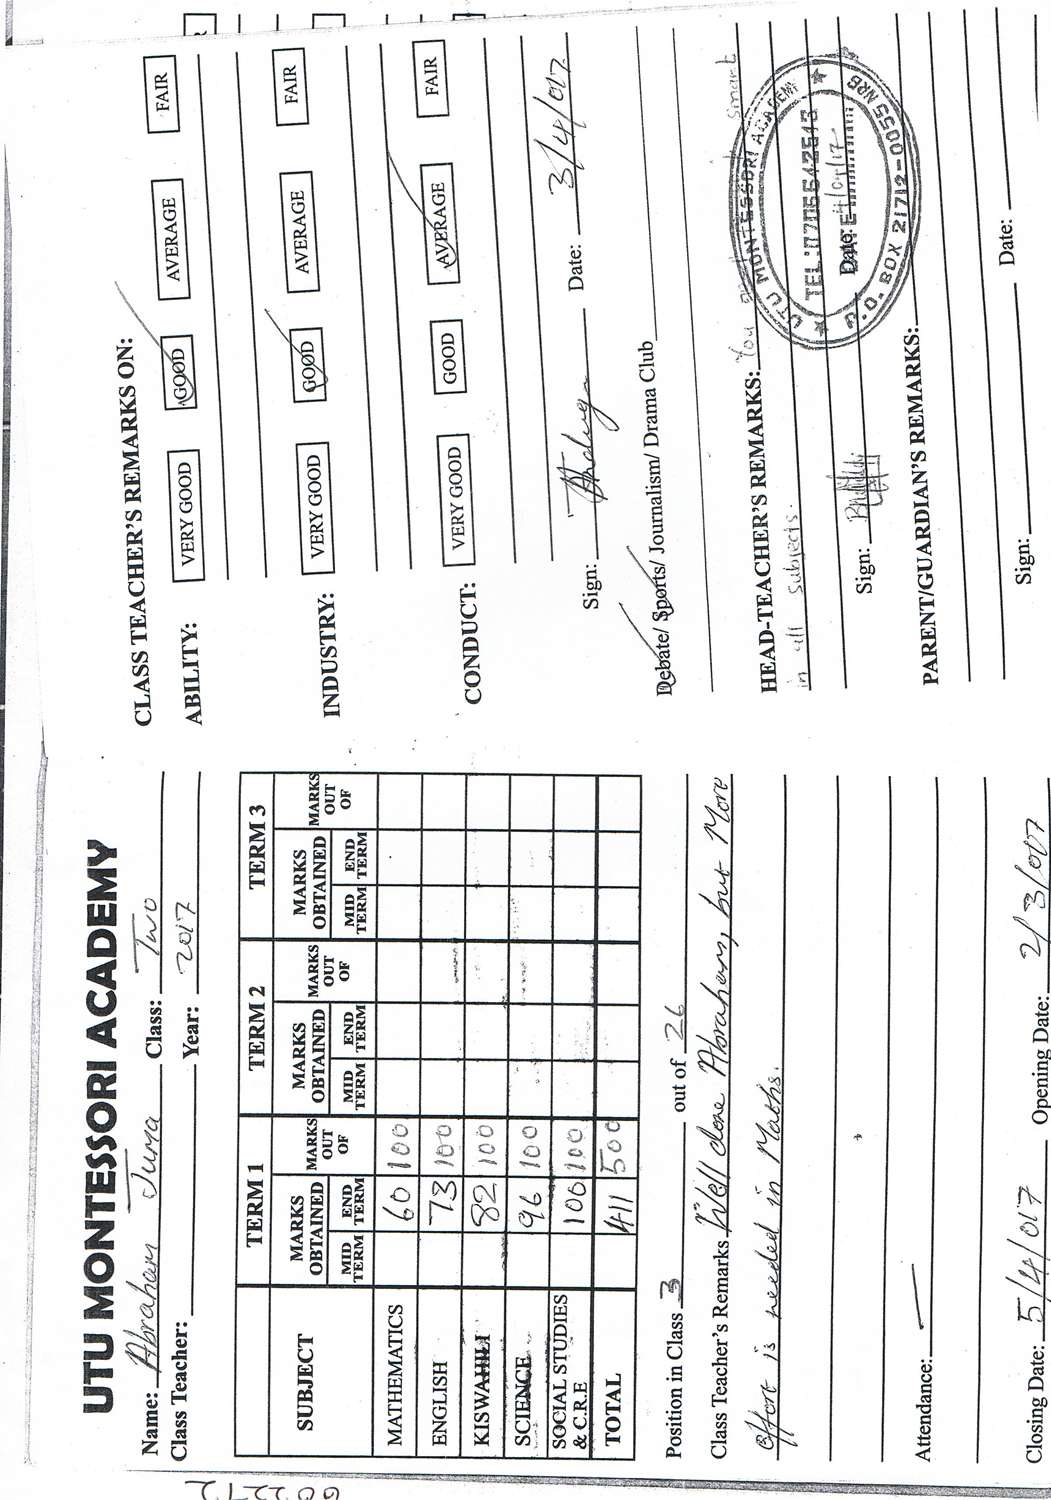 UTU MONTESSORI ACADEMY
Name: Abraham Juma Class: Two
Class Teacher: Year: 2017
SUBJECT TERM 1 TERM 2 TERM 3
MARKS OBTAINED MARKS OUT OF MARKS OBTAINED MARKS OUT OF MARKS OBTAINED MARKS OUT OF
MID TERM END TERM MID TERM END TERM MID TERM END TERM
MATHEMATICS 60 100
ENGLISH 73 100
KISWAHILI 82 100
SCIENCE 96 100
SOCIAL STUDIES & C.R.E 100 100
TOTAL 411 500
Position in Class 3 out of 26
Class Teacher's Remarks Well done Abraham, but More
effort is needed in Maths.
Attendance:
Closing Date: 5/4/017 Opening Date: 2/3/017
CLASS TEACHER'S REMARKS ON:
ABILITY: VERY GOOD GOOD AVERAGE FAIR
INDUSTRY: VERY GOOD GOOD AVERAGE FAIR
CONDUCT: VERY GOOD GOOD AVERAGE FAIR
Sign: Date: 3/4/017
Debate/ Sports/ Journalism/ Drama Club
HEAD-TEACHER'S REMARKS: You smart
in all subjects.
UTU MONTESSORI ACADEM
TEL: 0706542643
Sign: Date: 4/04/17
P.O. BOX 21712-0055 NRB
PARENT/GUARDIAN'S REMARKS:
Sign: Date:
602272